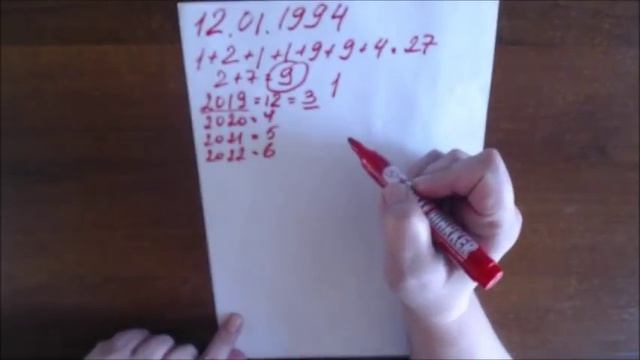 12.01.1994
1+2+1+1+9+9+4=27
2+7=9
1
2019=12=3
2020=4
2021=5
2022=6
MARKER